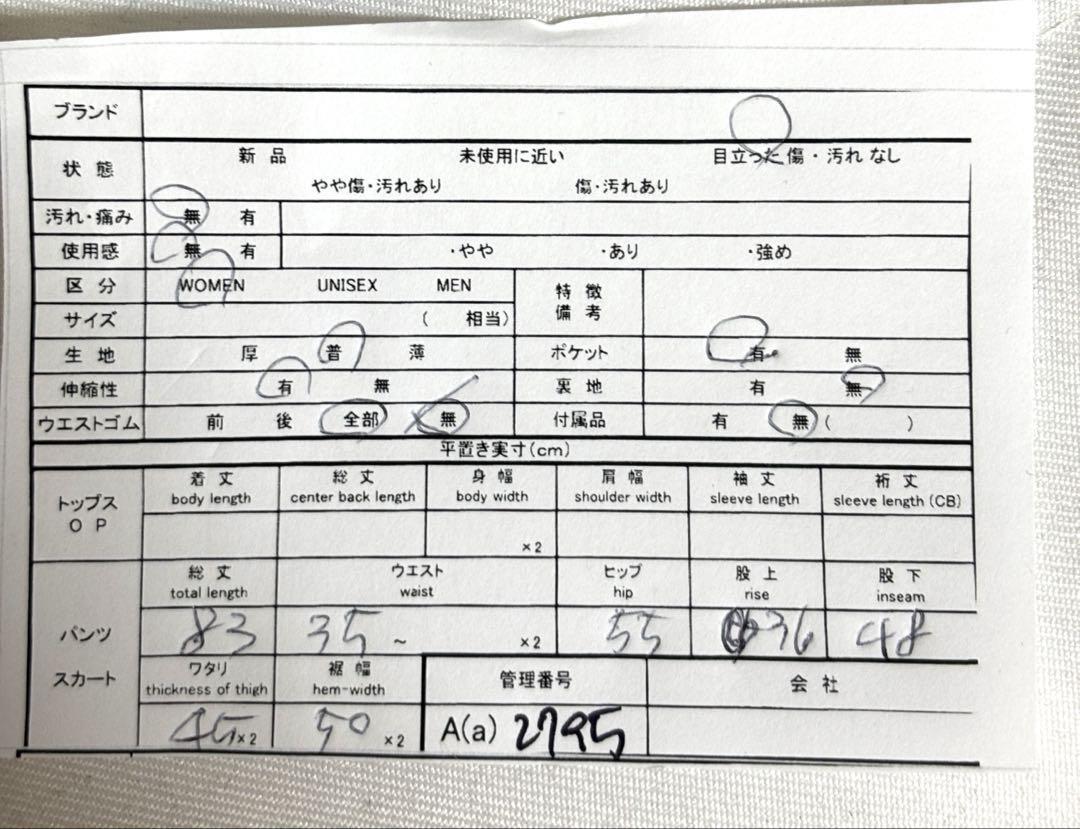 ブランド
状態 新品 未使用に近い 目立った傷・汚れなし
やや傷・汚れあり 傷・汚れあり
汚れ・痛み 無 有
使用感 無 有 ・やや ・あり ・強め
区分 WOMEN UNISEX MEN 特徴
備考
サイズ ( 相当)
生地 厚 普 薄 ポケット 有 無
伸縮性 有 無 裏地 有 無
ウエストゴム 前 後 全部 無 付属品 有 無 ( )
平置き実寸(cm)
トップス
O P
着丈 総丈 身幅 肩幅 袖丈 裄丈
body length center back length body width shoulder width sleeve length sleeve length (CB)
×2
総丈 ウエスト ヒップ 股上 股下
total length waist hip rise inseam
パンツ 83 35 ~ ×2 55 36 48
スカート ワタリ 裾幅 管理番号 会社
thickness of thigh hem-width
45 ×2 50 ×2 A(a) 2795